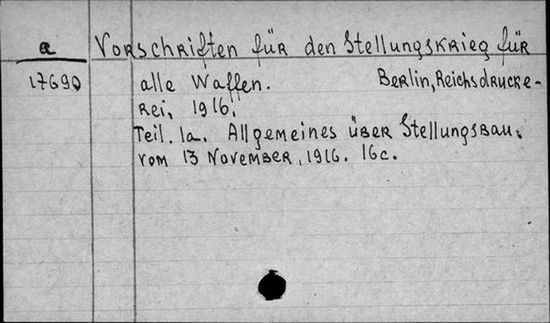 a Vorschriften für den Stellungskrieg für
17690 alle Waffen. Berlin, Reichsdrucke-
rei, 1916.
Teil. 1a. Allgemeines über Stellungsbau.
vom 13 November, 1916. 16c.